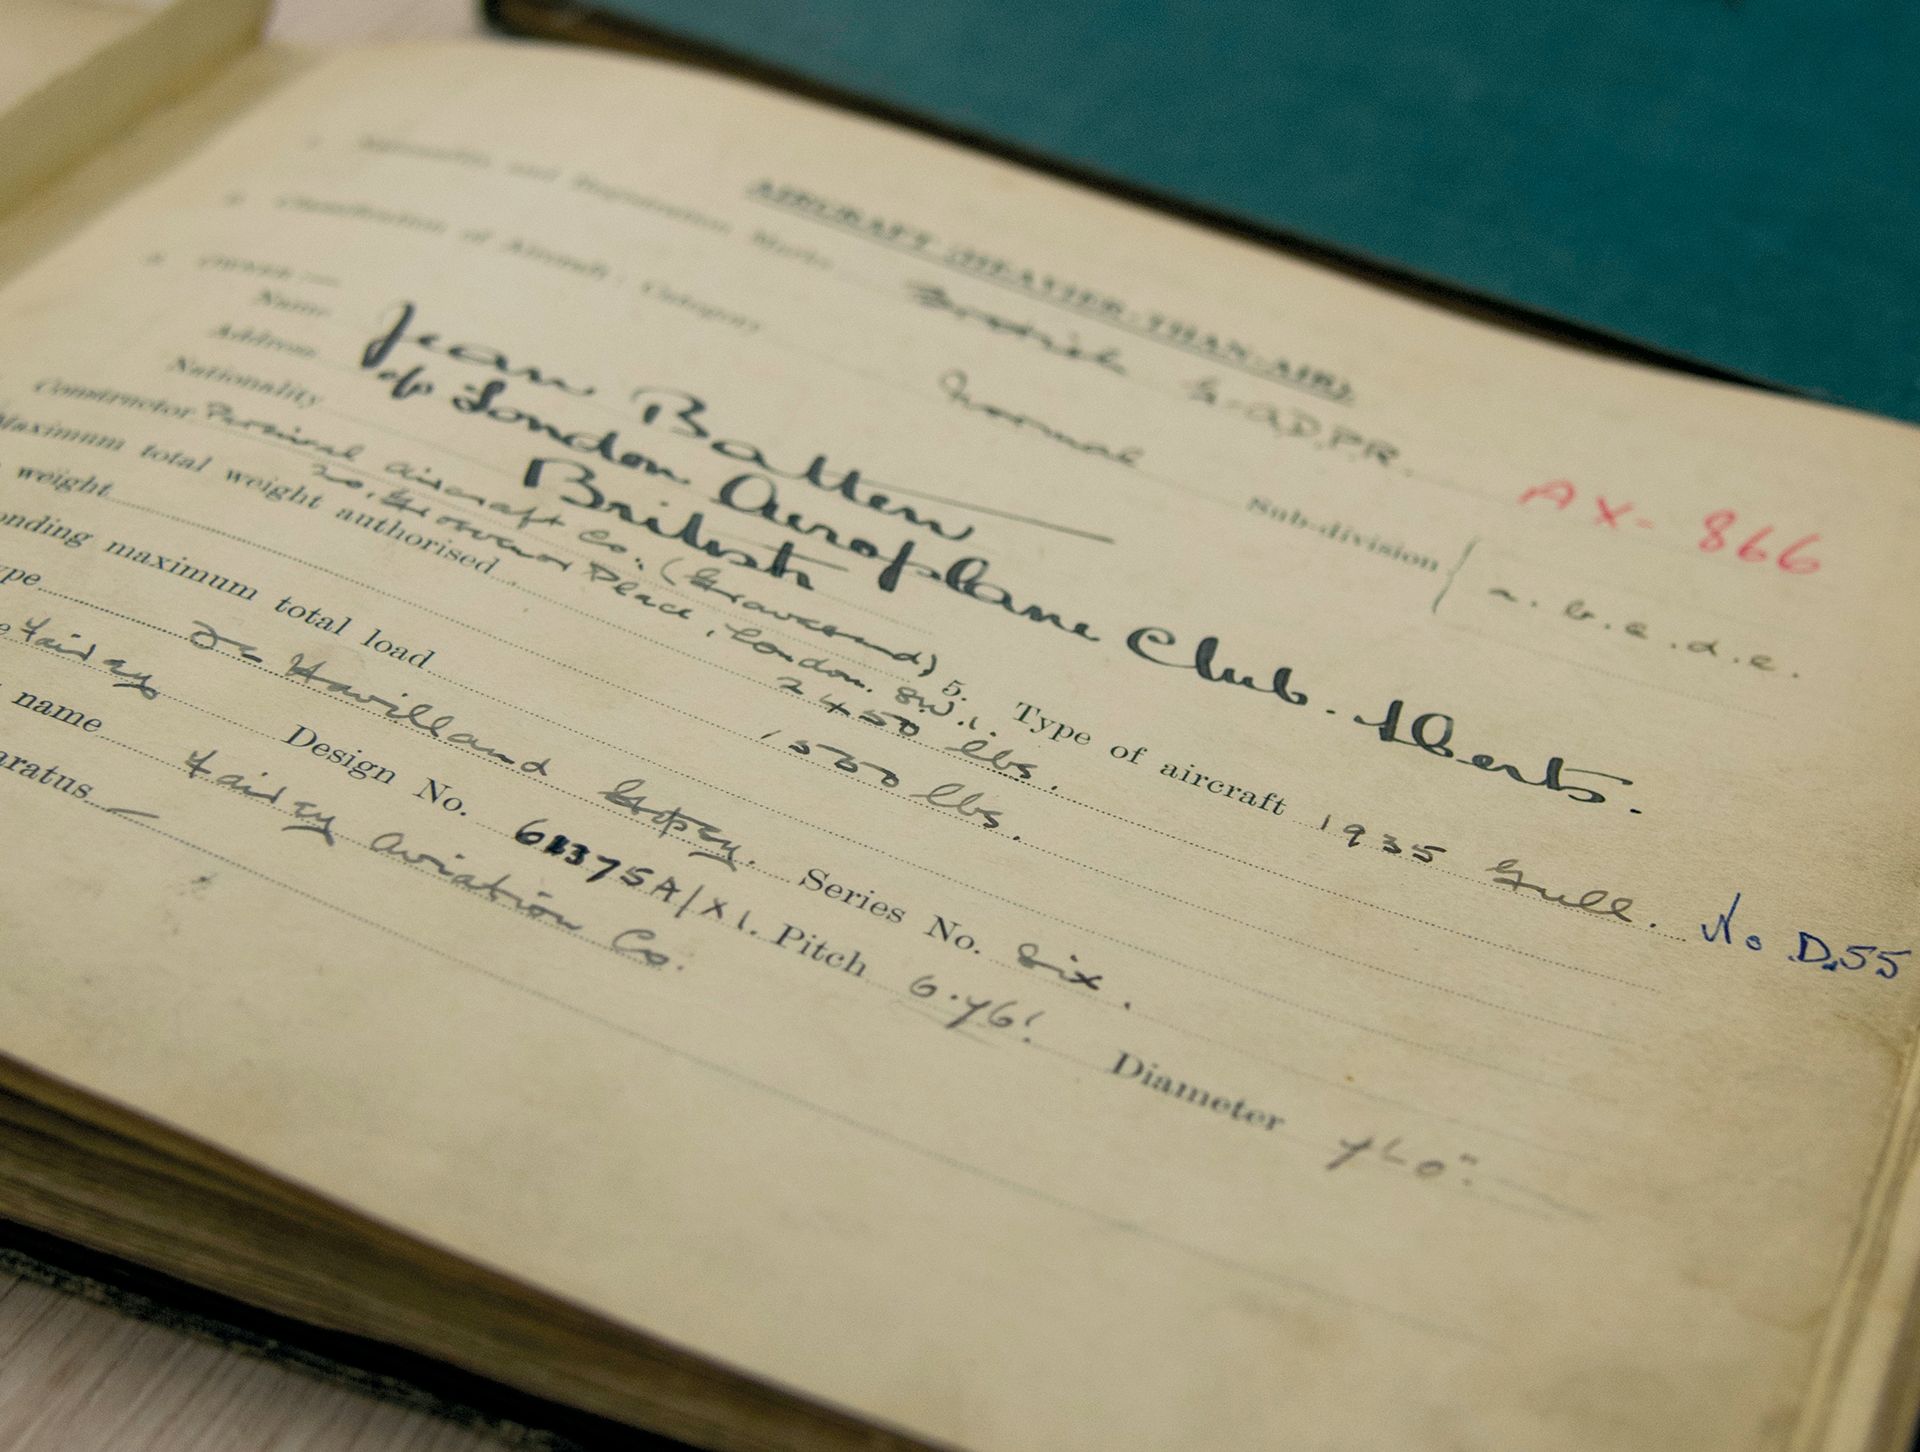 AIRCRAFT (HEAVIER-THAN-AIR)
1. Nationality and Registration Marks British G-ADPR. AX-866
2. Classification of Aircraft: Category Normal Sub-division { a.b.c.d.e.
3. OWNER:—
Name Jean Batten
Address c/o London Aeroplane Club. Herts.
Nationality British
Constructor Percival Aircraft Co. (Gravesend) 5. Type of aircraft 1935 Gull. No D.55
20, Grosvenor Place, London. SW.1.
Maximum total weight authorised 2450 lbs.
weight 1500 lbs.
onding maximum total load
ype De Havilland Gipsy. Series No. Six.
e Fairey Design No. 61375A/X1. Pitch 6.76! Diameter
name Fairey Aviation Co.
aratus —